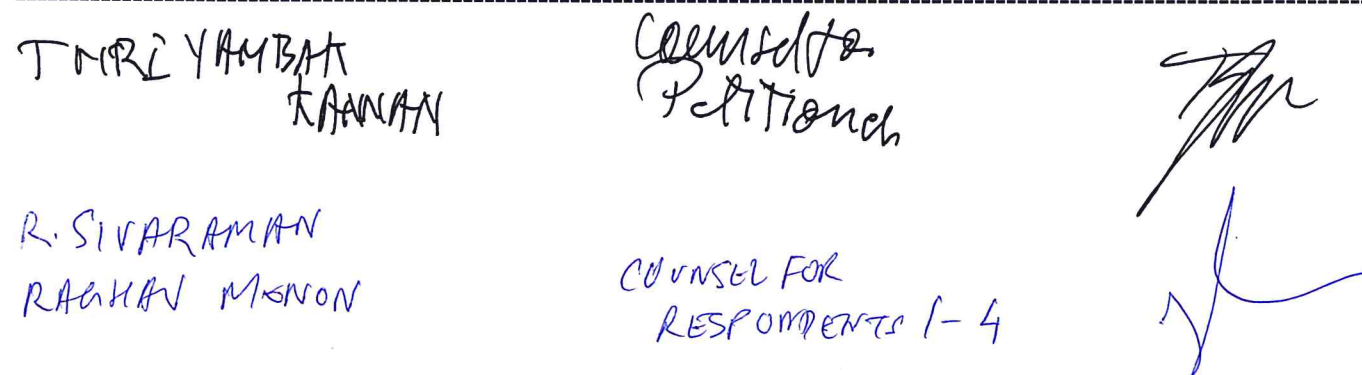 THRIYAMBAK
KANNAN
Counsel for
Petitioner
R. SIVARAMAN
RAGHAV MENON
COUNSEL FOR
RESPONDENTS 1-4